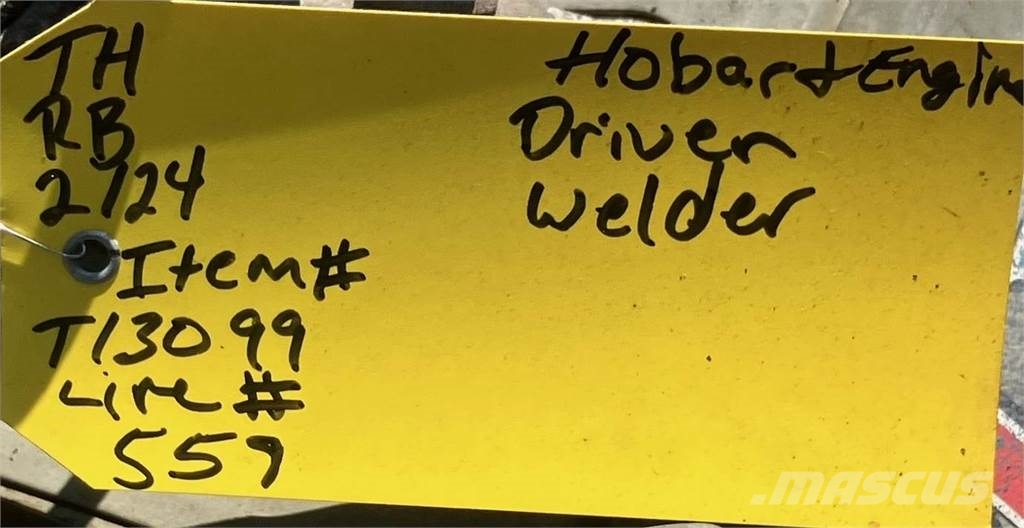 TH
RB
2/24
Item#
T13099
Line #
559
Hobart Engin
Driven
Welder
.mascus